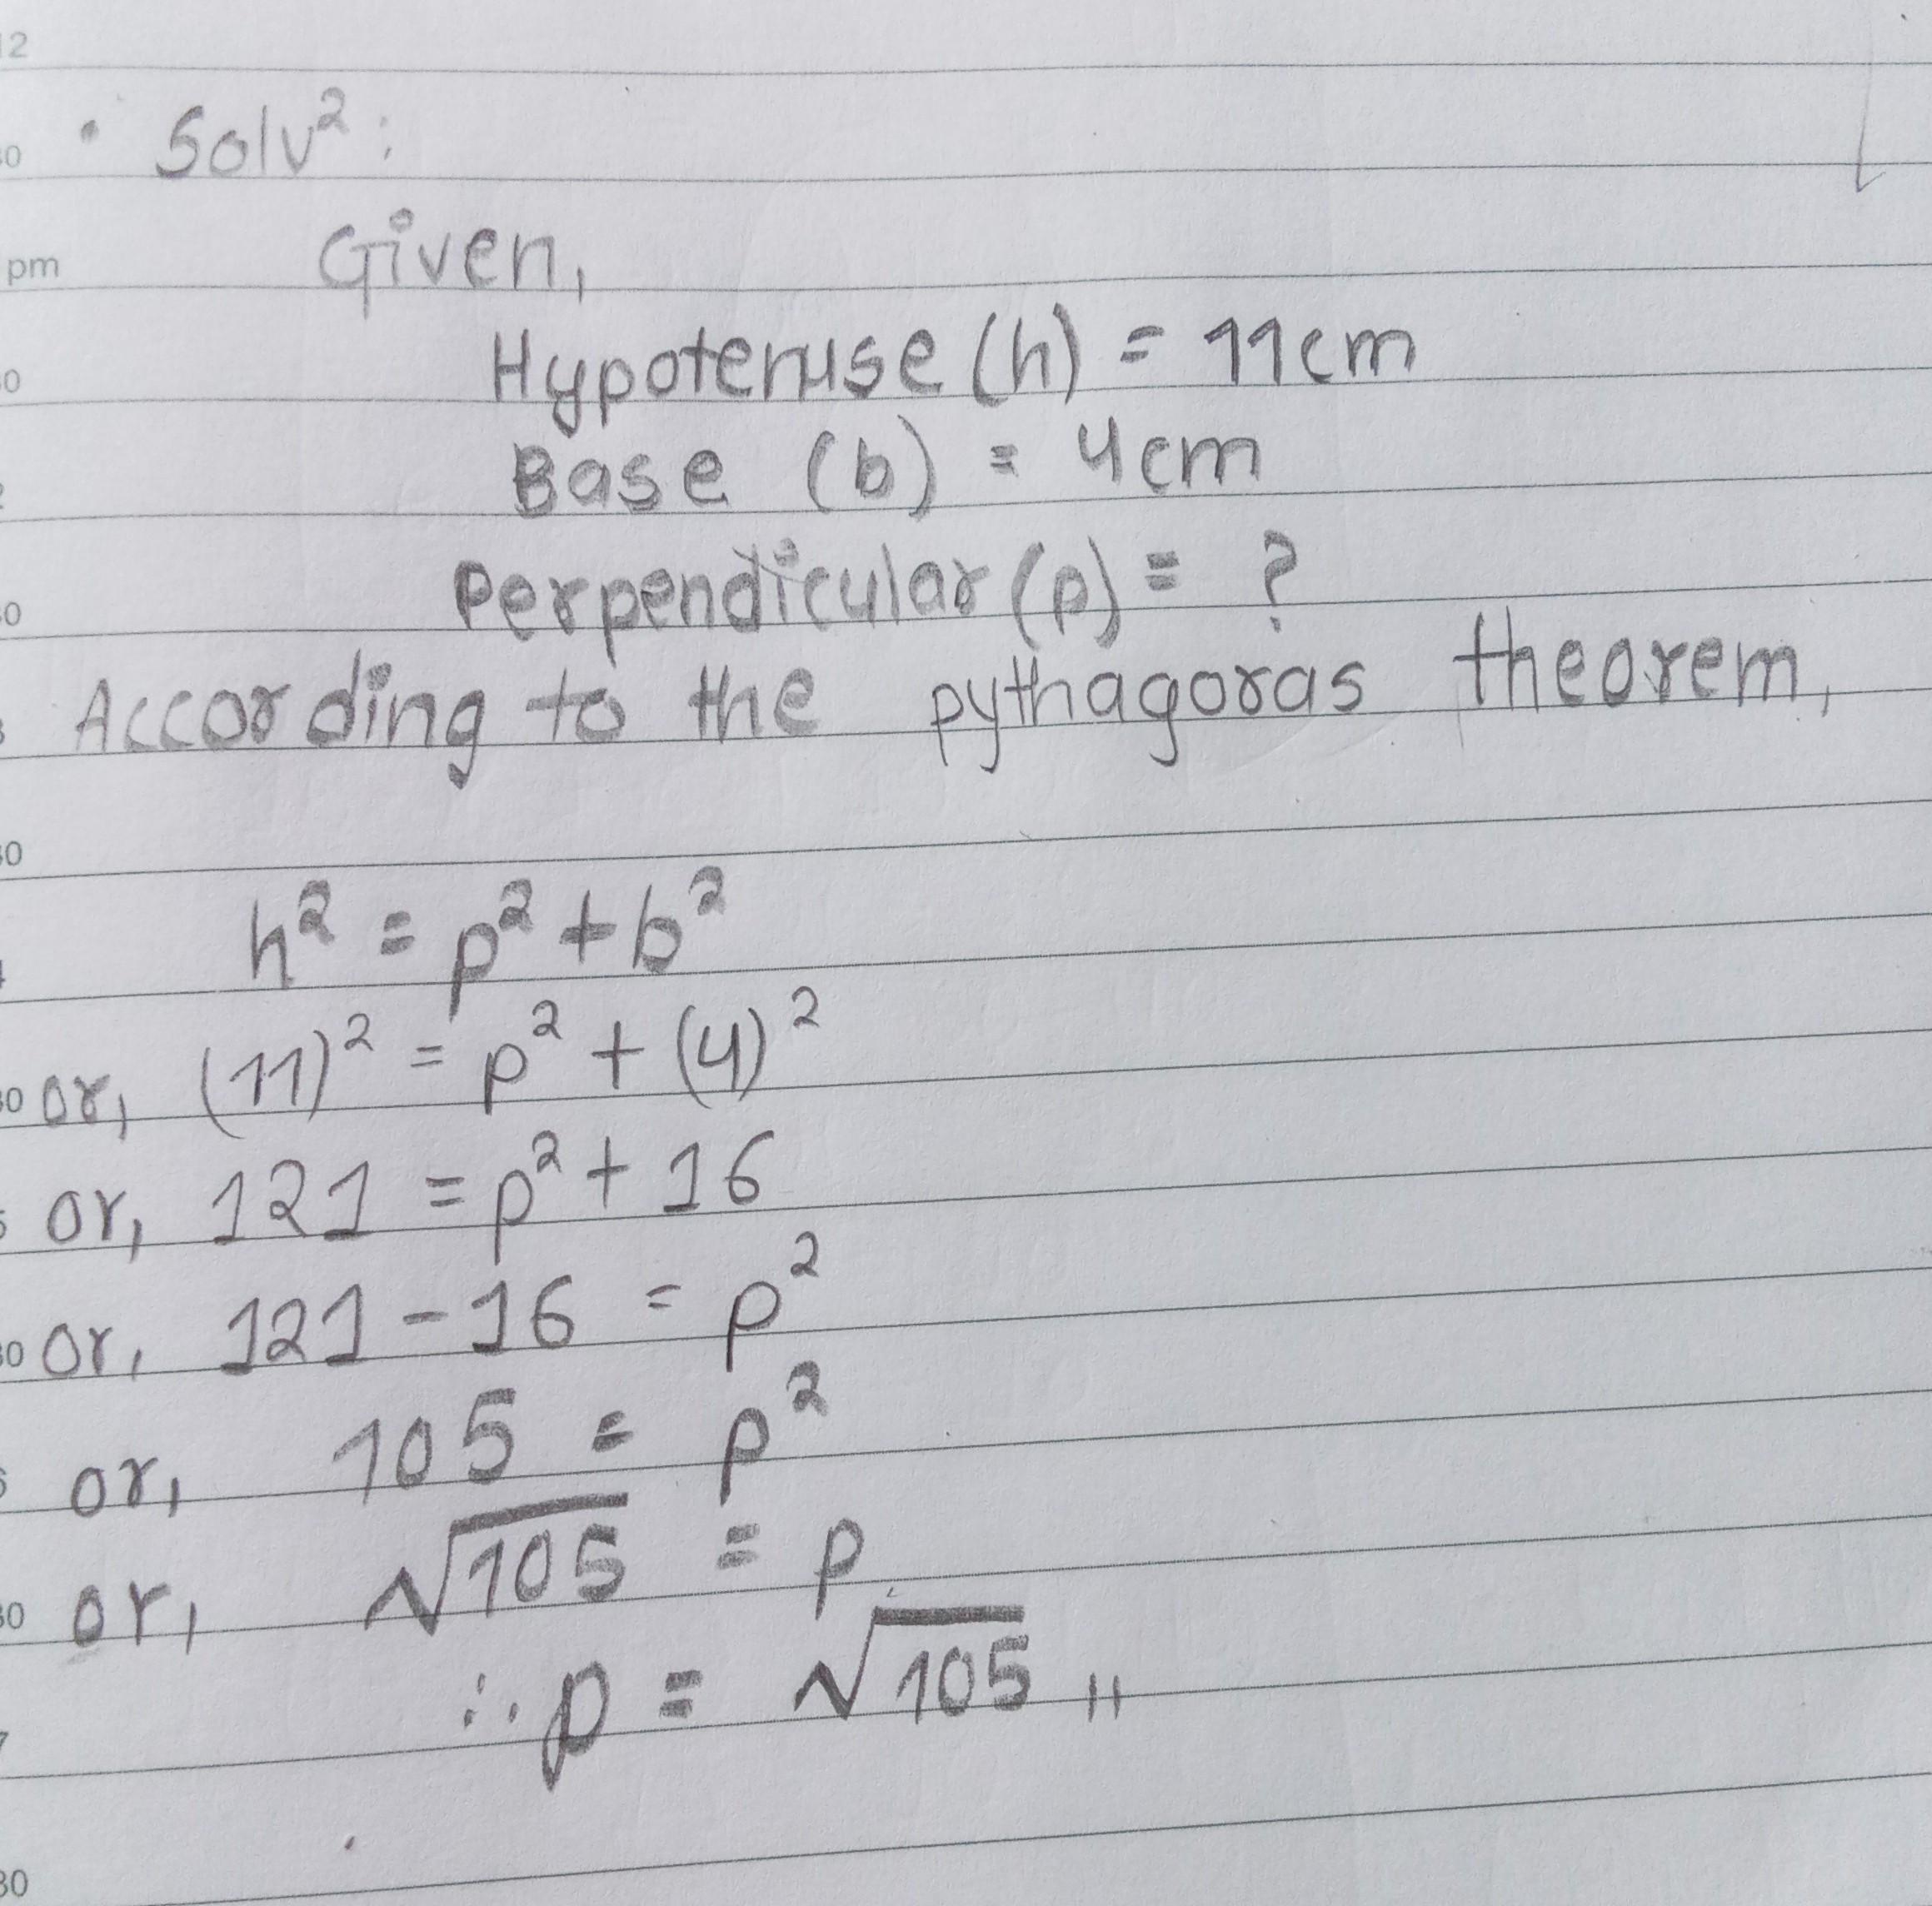 12
• Solv²:
30
Given,
pm
Hypotenuse (h) = 11cm
30
Base (b) = 4cm
2
Perpendicular (p) = ?
30
According to the pythagoras theorem,
3
30
h² = p² + b²
4
or, (11)² = p² + (4)²
30
or, 121 = p² + 16
5
or, 121 - 16 = p²
30
or, 105 = p²
6
or, √105 = p
30
∴ p = √105 ,,
7
30